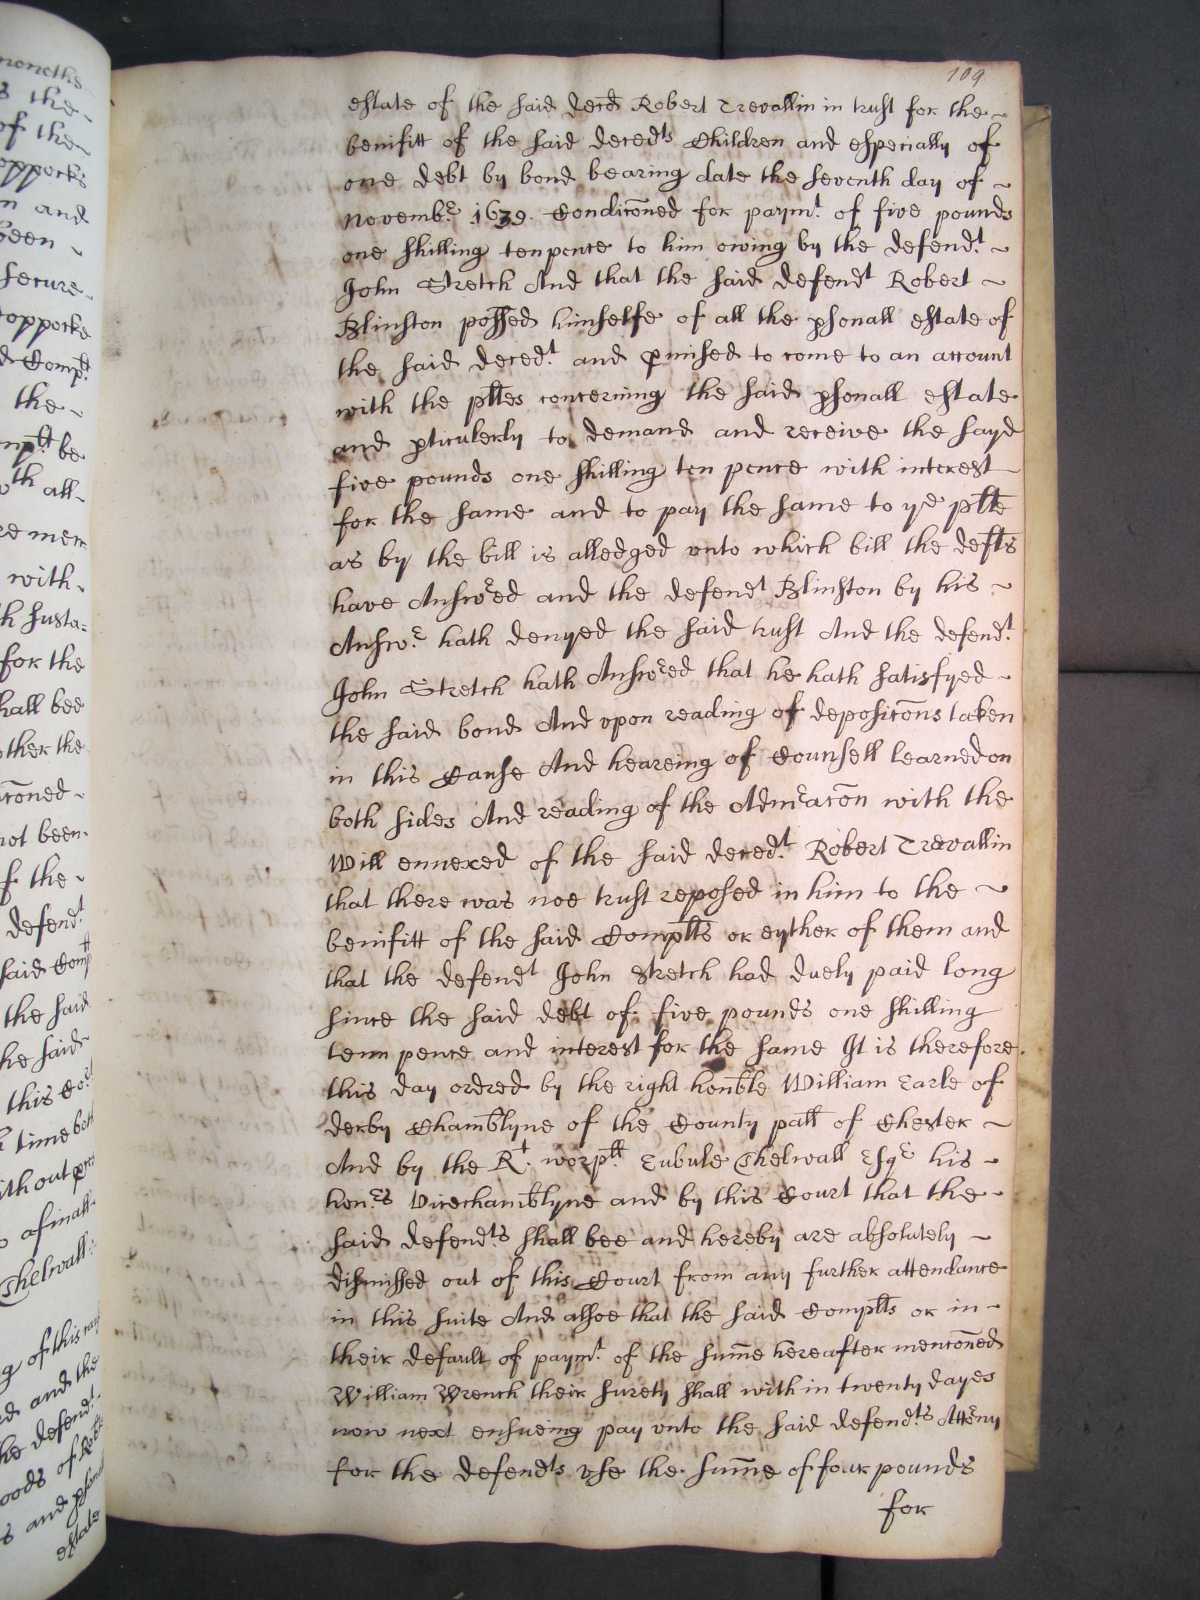 109
estate of the said deced Robert Trevallin in trust for the
benifitt of the said decedts Children and especially of
one debt by bond bearing date the seventh day of
Novembr. 1639. Condicōned for paymt. of five pounds
one shilling tenpence to him owing by the defendt.
John Stretch And that the said defendt Robert
Blinston possed himselfe of all the psonall estate of
the said decedt. and pmised to come to an account
with the pltes concerning the said psonall estate
and pticulerly to demand and receive the sayd
five pounds one shilling ten pence with interest
for the same and to pay the same to ye plte
as by the bill is alledged unto which bill the defts
have Answred and the defendt Blinston by his
Answr. hath denyed the said trust And the defendt.
John Stretch hath Answred that he hath satisfyed
the said bond And upon reading of deposicōns taken
in this Cause And heareing of Counsell learned on
both sides And reading of the Admracōn with the
Will ennexed of the said decedt. Robert Trevallin
that there was noe trust reposed in him to the
benifitt of the said Complts or eyther of them and
that the defendt John Stretch had duely paid long
since the said debt of five pounds one shilling
tenn pence and interest for the same It is therefore
this day ordred by the right honble William Earle of
derby Chamblyne of the County patt of Chester
And by the Rt. worpll. Eubule Thelwall Esqr his
honrs Vicechamblyne and by this Court that the
said defendts. shall bee and hereby are absolutely
dismissed out of this Court from any further attendance
in this suite And alsoe that the said Complts or in
their default of paymt. of the sum̄e hereafter mencōned
William Wrench their surety shall with in twenty dayes
now next ensueing pay unto the said defendts. Attrny
for the defendts use the sum̄e of four pounds
for